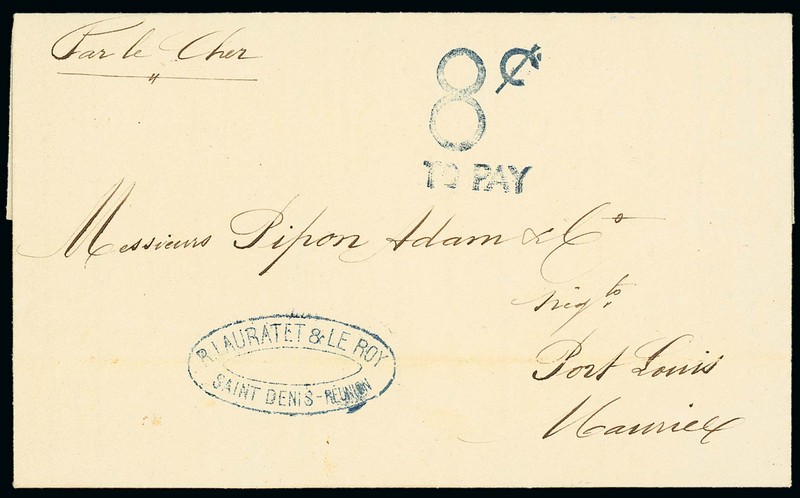 Par le Cher
"
8 ¢
TO PAY
Messieurs Pipon Adam & Co
Négts
Port Louis
Maurice
R. LAURATET & LE ROY
SAINT DENIS - RÉUNION